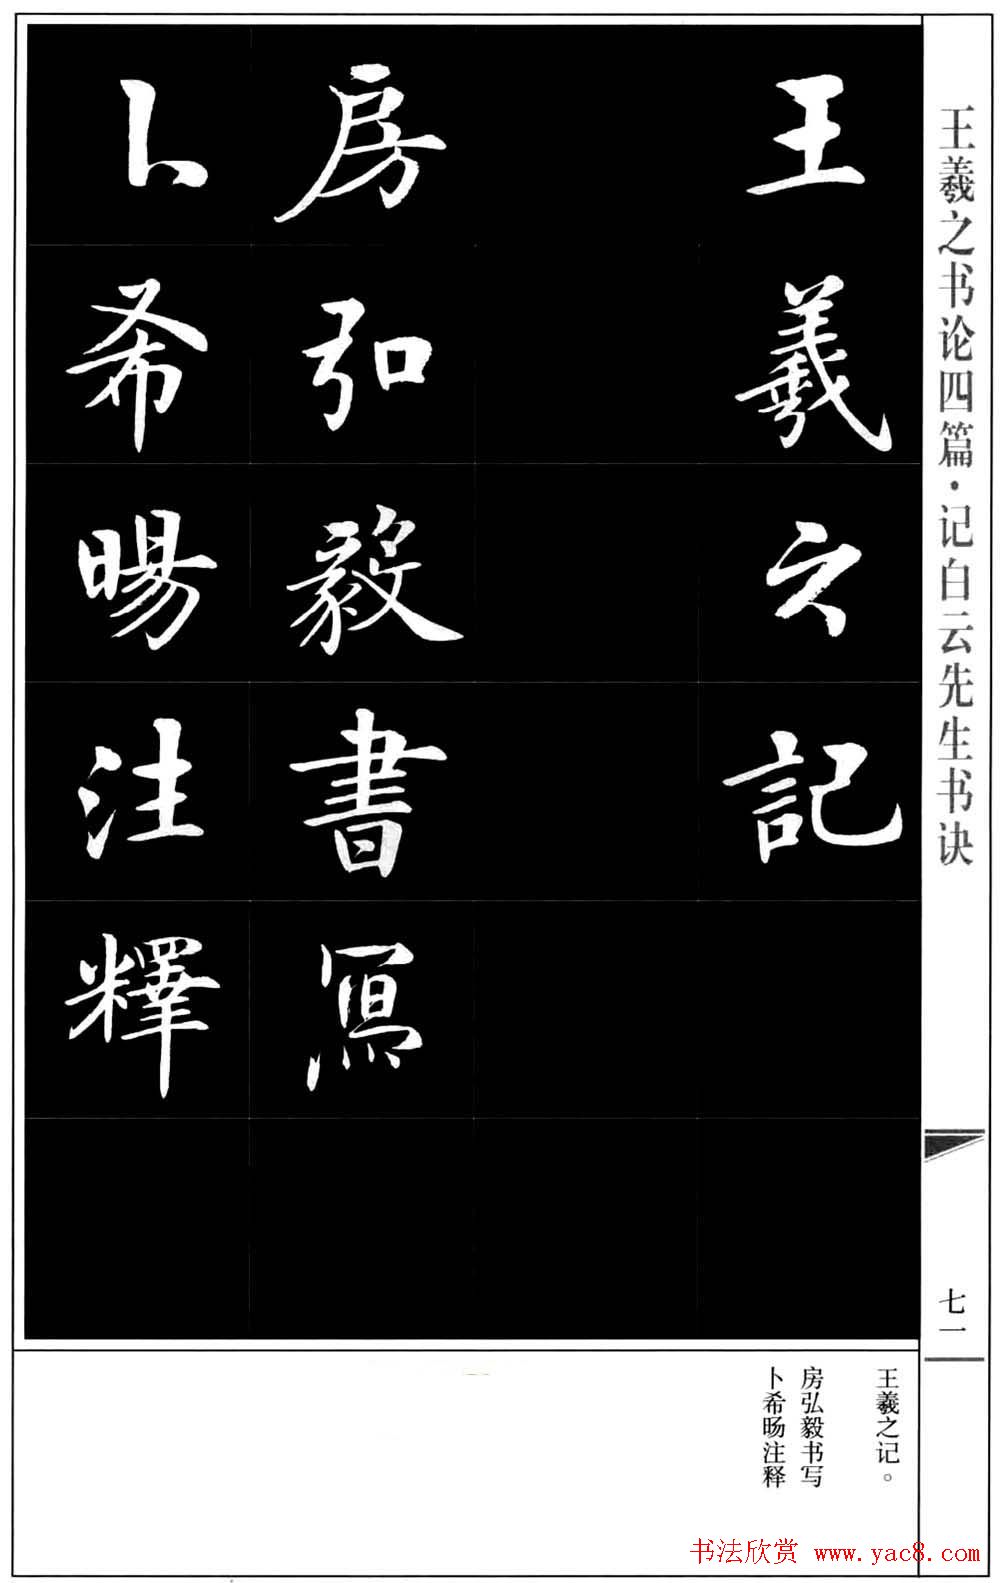 王羲之书论四篇·记白云先生书诀
七一
王羲之記
房弘毅書寫
卜希暘注釋
王羲之记。
房弘毅书写
卜希旸注释
书法欣赏 www.yac8.com